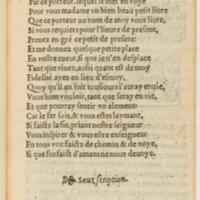 Par ce porteur, lequel il met en voye
Pour vous madame vn bien beau petit liure
Que ce porteur au nom de moy vous liure,
Si vous requiers pour l'heure de present,
Prenez en gré ce petit de present:
Et me donnez quelque petite place
En vostre cueur, si que ien'en desplace
Tant que viuez, aussi quant est de moy
Fidelité ayez en lieu d'esmoy,
Quoy qu'il en soit tousiours l'auray enuie,
Vous bien vouloir, tant que seray en vie,
Et que pourray sentir vn element:
Car le fer suis, & vous estes laymant,
Si faictz la fin, priant nostre seigneur
Vous inspirer & vous estre enseigneur
En tous voz faictz de chemin & de voye,
Si que forfaict d'amans ne nous deuoye.
Seuz scription.